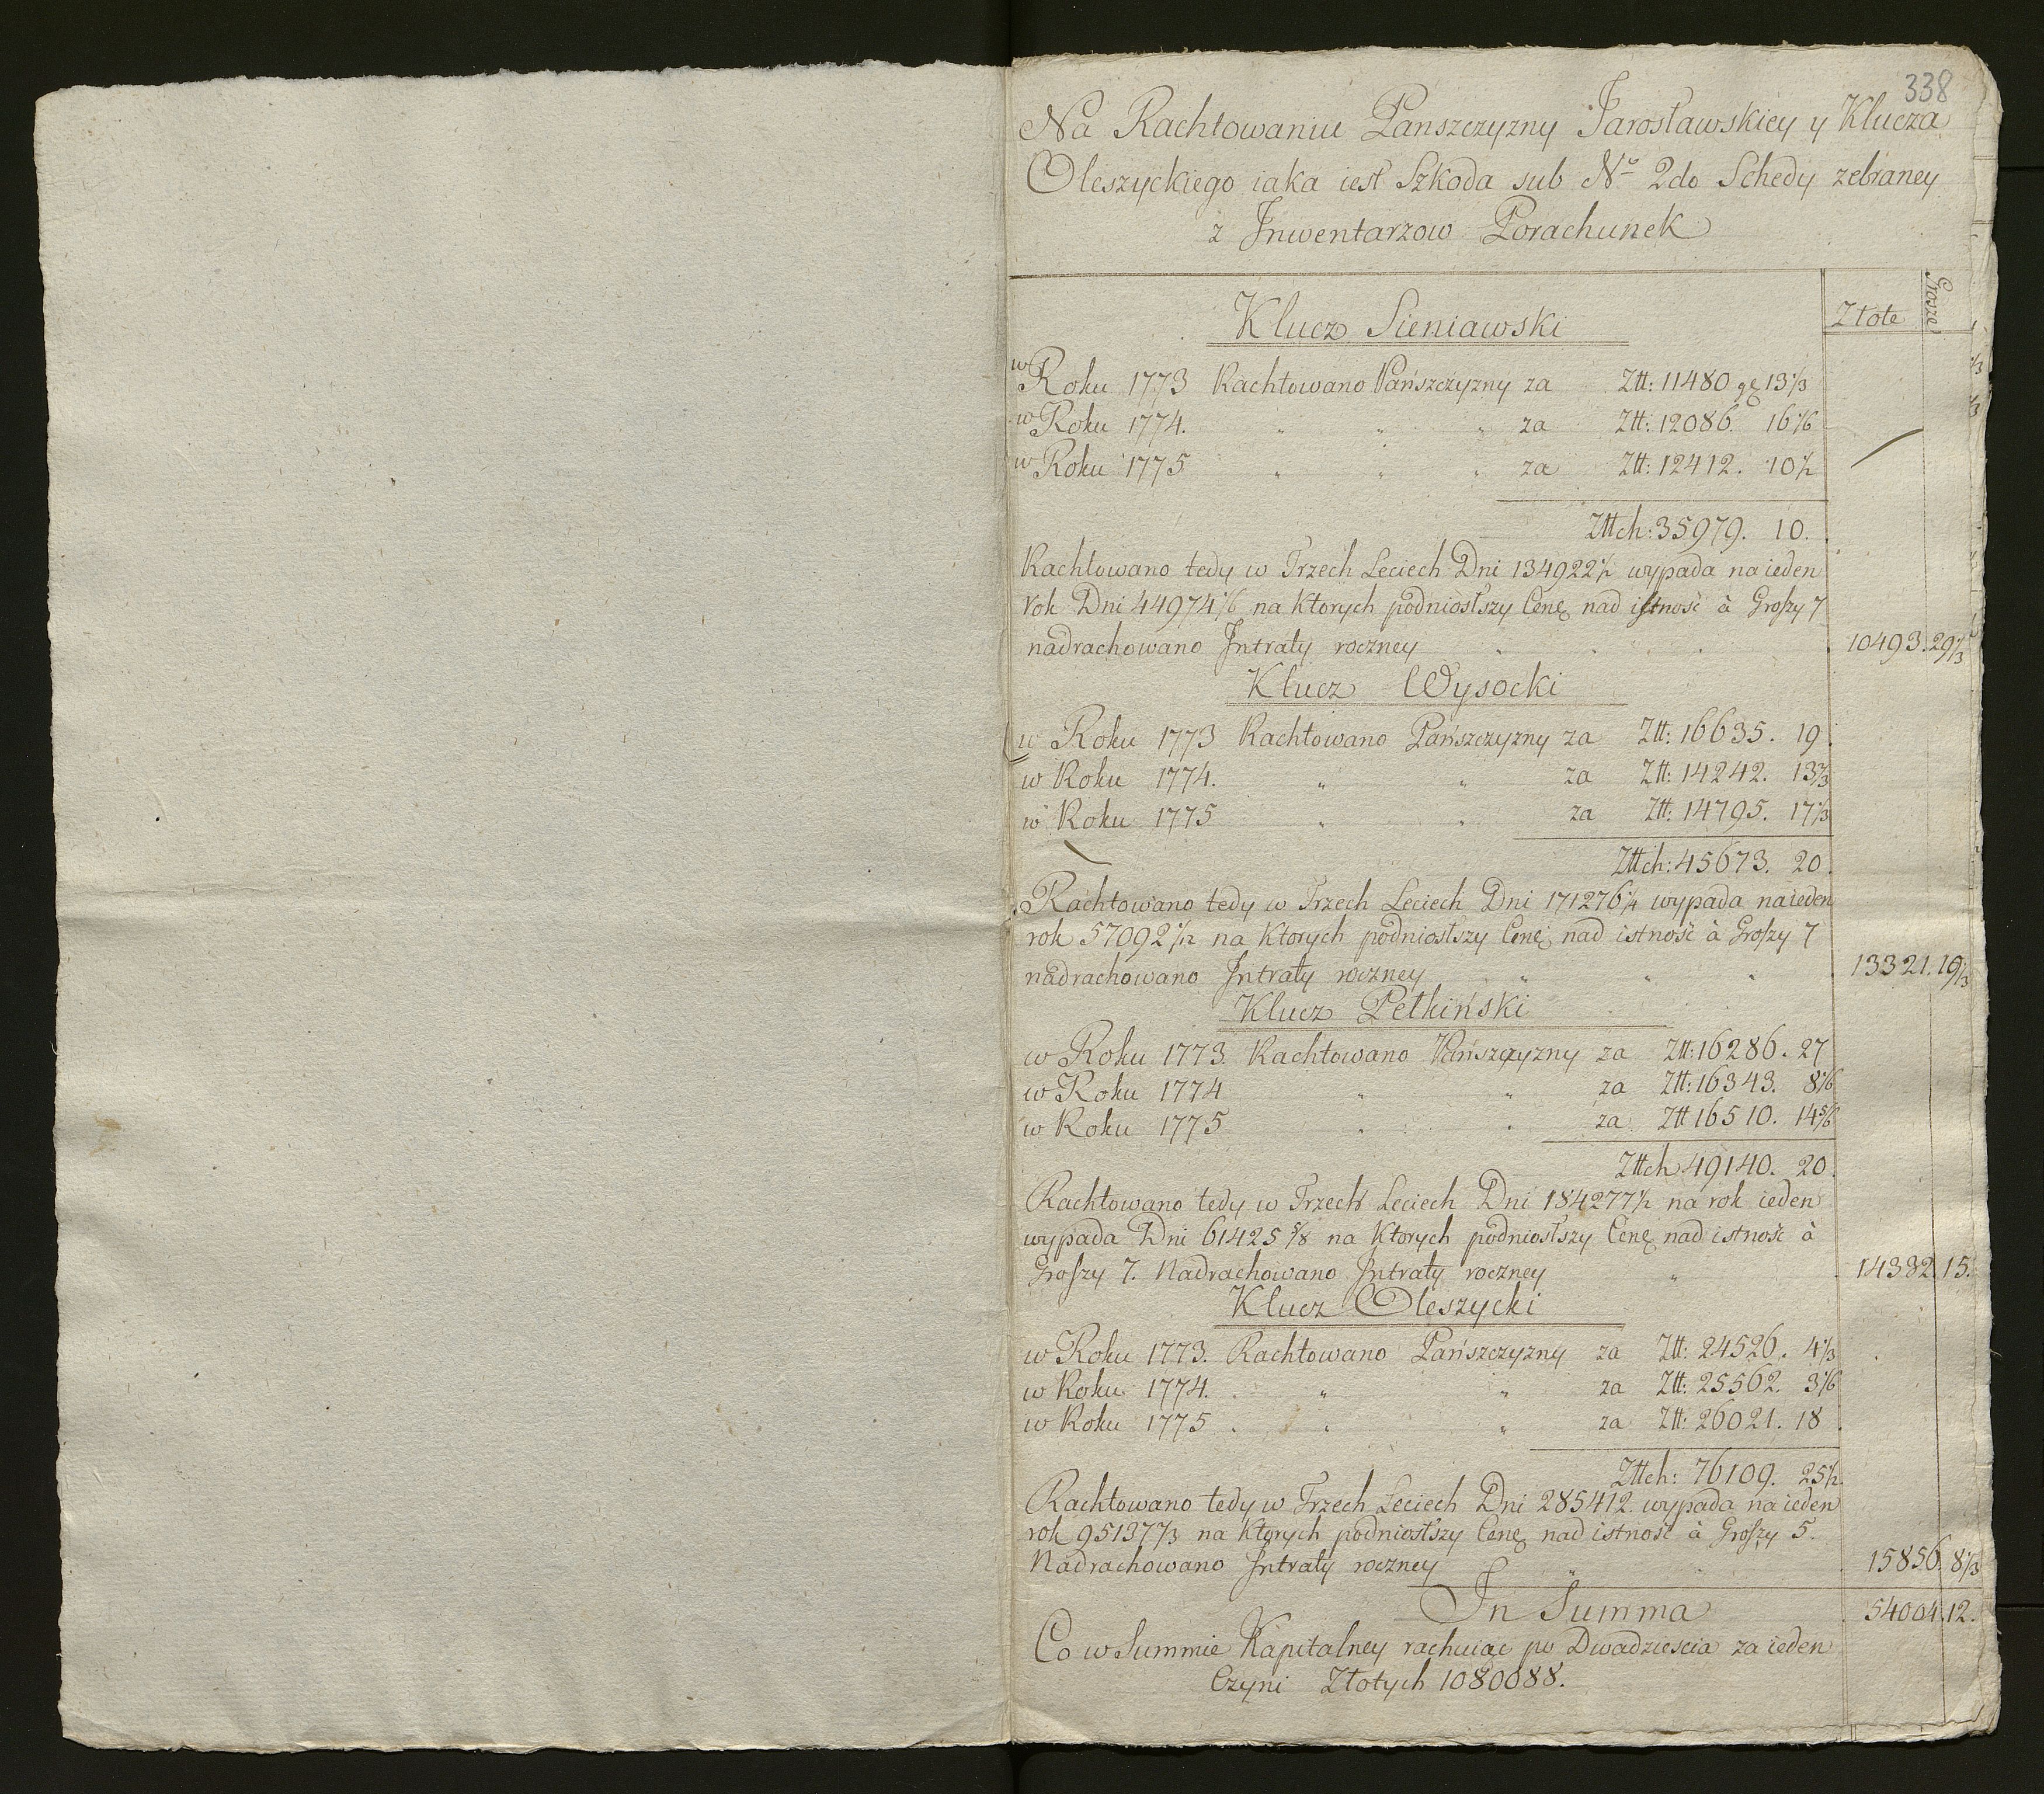 338
Na Rachtowaniu Panszczyzny Jarosławskiey y Klucza
Oleszyckiego iaka iest Szkoda sub No 2do Schedy zebraney
z Jnwentarzow Porachunek
Złote Grosze
Klucz Sieniawski
w Roku 1773 Rachtowano Pańszczyzny za Ztt: 11480 gę 13 1/3
w Roku 1774. " " " za Ztt: 12086. 16 1/6
w Roku 1775 " " " za Ztt: 12412. 10 1/2
Zttch: 35979. 10.
Rachtowano tedy w Trzech Leciech Dni 134922 1/2 wypada na ieden
rok Dni 44974 1/6 na Ktorych podniosłszy Cenę nad istność à Groszy 7
nadrachowano Jntraty roczney 10493. 29 1/3
Klucz Wysocki
w Roku 1773 Rachtowano Pańszczyzny za Ztt: 16635. 19.
w Roku 1774. " " za Ztt: 14242. 13 2/3
w Roku 1775 " " za Ztt: 14795. 17 1/3
Zttch: 45673. 20.
Rachtowano tedy w Trzech Leciech Dni 171276 1/4 wypada na ieden
rok 57092 1/12 na Ktorych podniosłszy Cenę nad istność à Groszy 7
nadrachowano Jntraty roczney " " " 13321. 19 1/3
Klucz Pełkiński
w Roku 1773. Rachtowano Pańszczyzny za Ztt: 16286. 27
w Roku 1774 " " za Ztt: 16343. 8 1/6
w Roku 1775 " " za Ztt 16510. 14 5/6
Zttch 49140. 20.
Rachtowano tedy w Trzech Leciech Dni 184277 1/2 na rok ieden
wypada Dni 61425 5/8 na Ktorych podniosłszy Cenę nad istność à
Groszy 7. Nadrachowano Jntraty roczney " 14332. 15.
Klucz Oleszycki
w Roku 1773. Rachtowano Pańszczyzny za Ztt: 24526. 4 1/3
w Roku 1774. " " za Ztt: 25562. 3 1/6
w Roku 1775. " " za Ztt: 26021. 18.
Zttch: 76109. 25 1/2
Rachtowano tedy w Trzech Leciech Dni 285412. wypada na ieden
rok 95137 1/3 na Ktorych podniosłszy Cenę nad istność à Groszy 5.
Nadrachowano Jntraty roczney " 15856. 8 1/3
Jn Summa 54004. 12.
Co w Summie Kapitalney rachuiąc po Dwadziescia za ieden
Czyni Złotych 1080088.